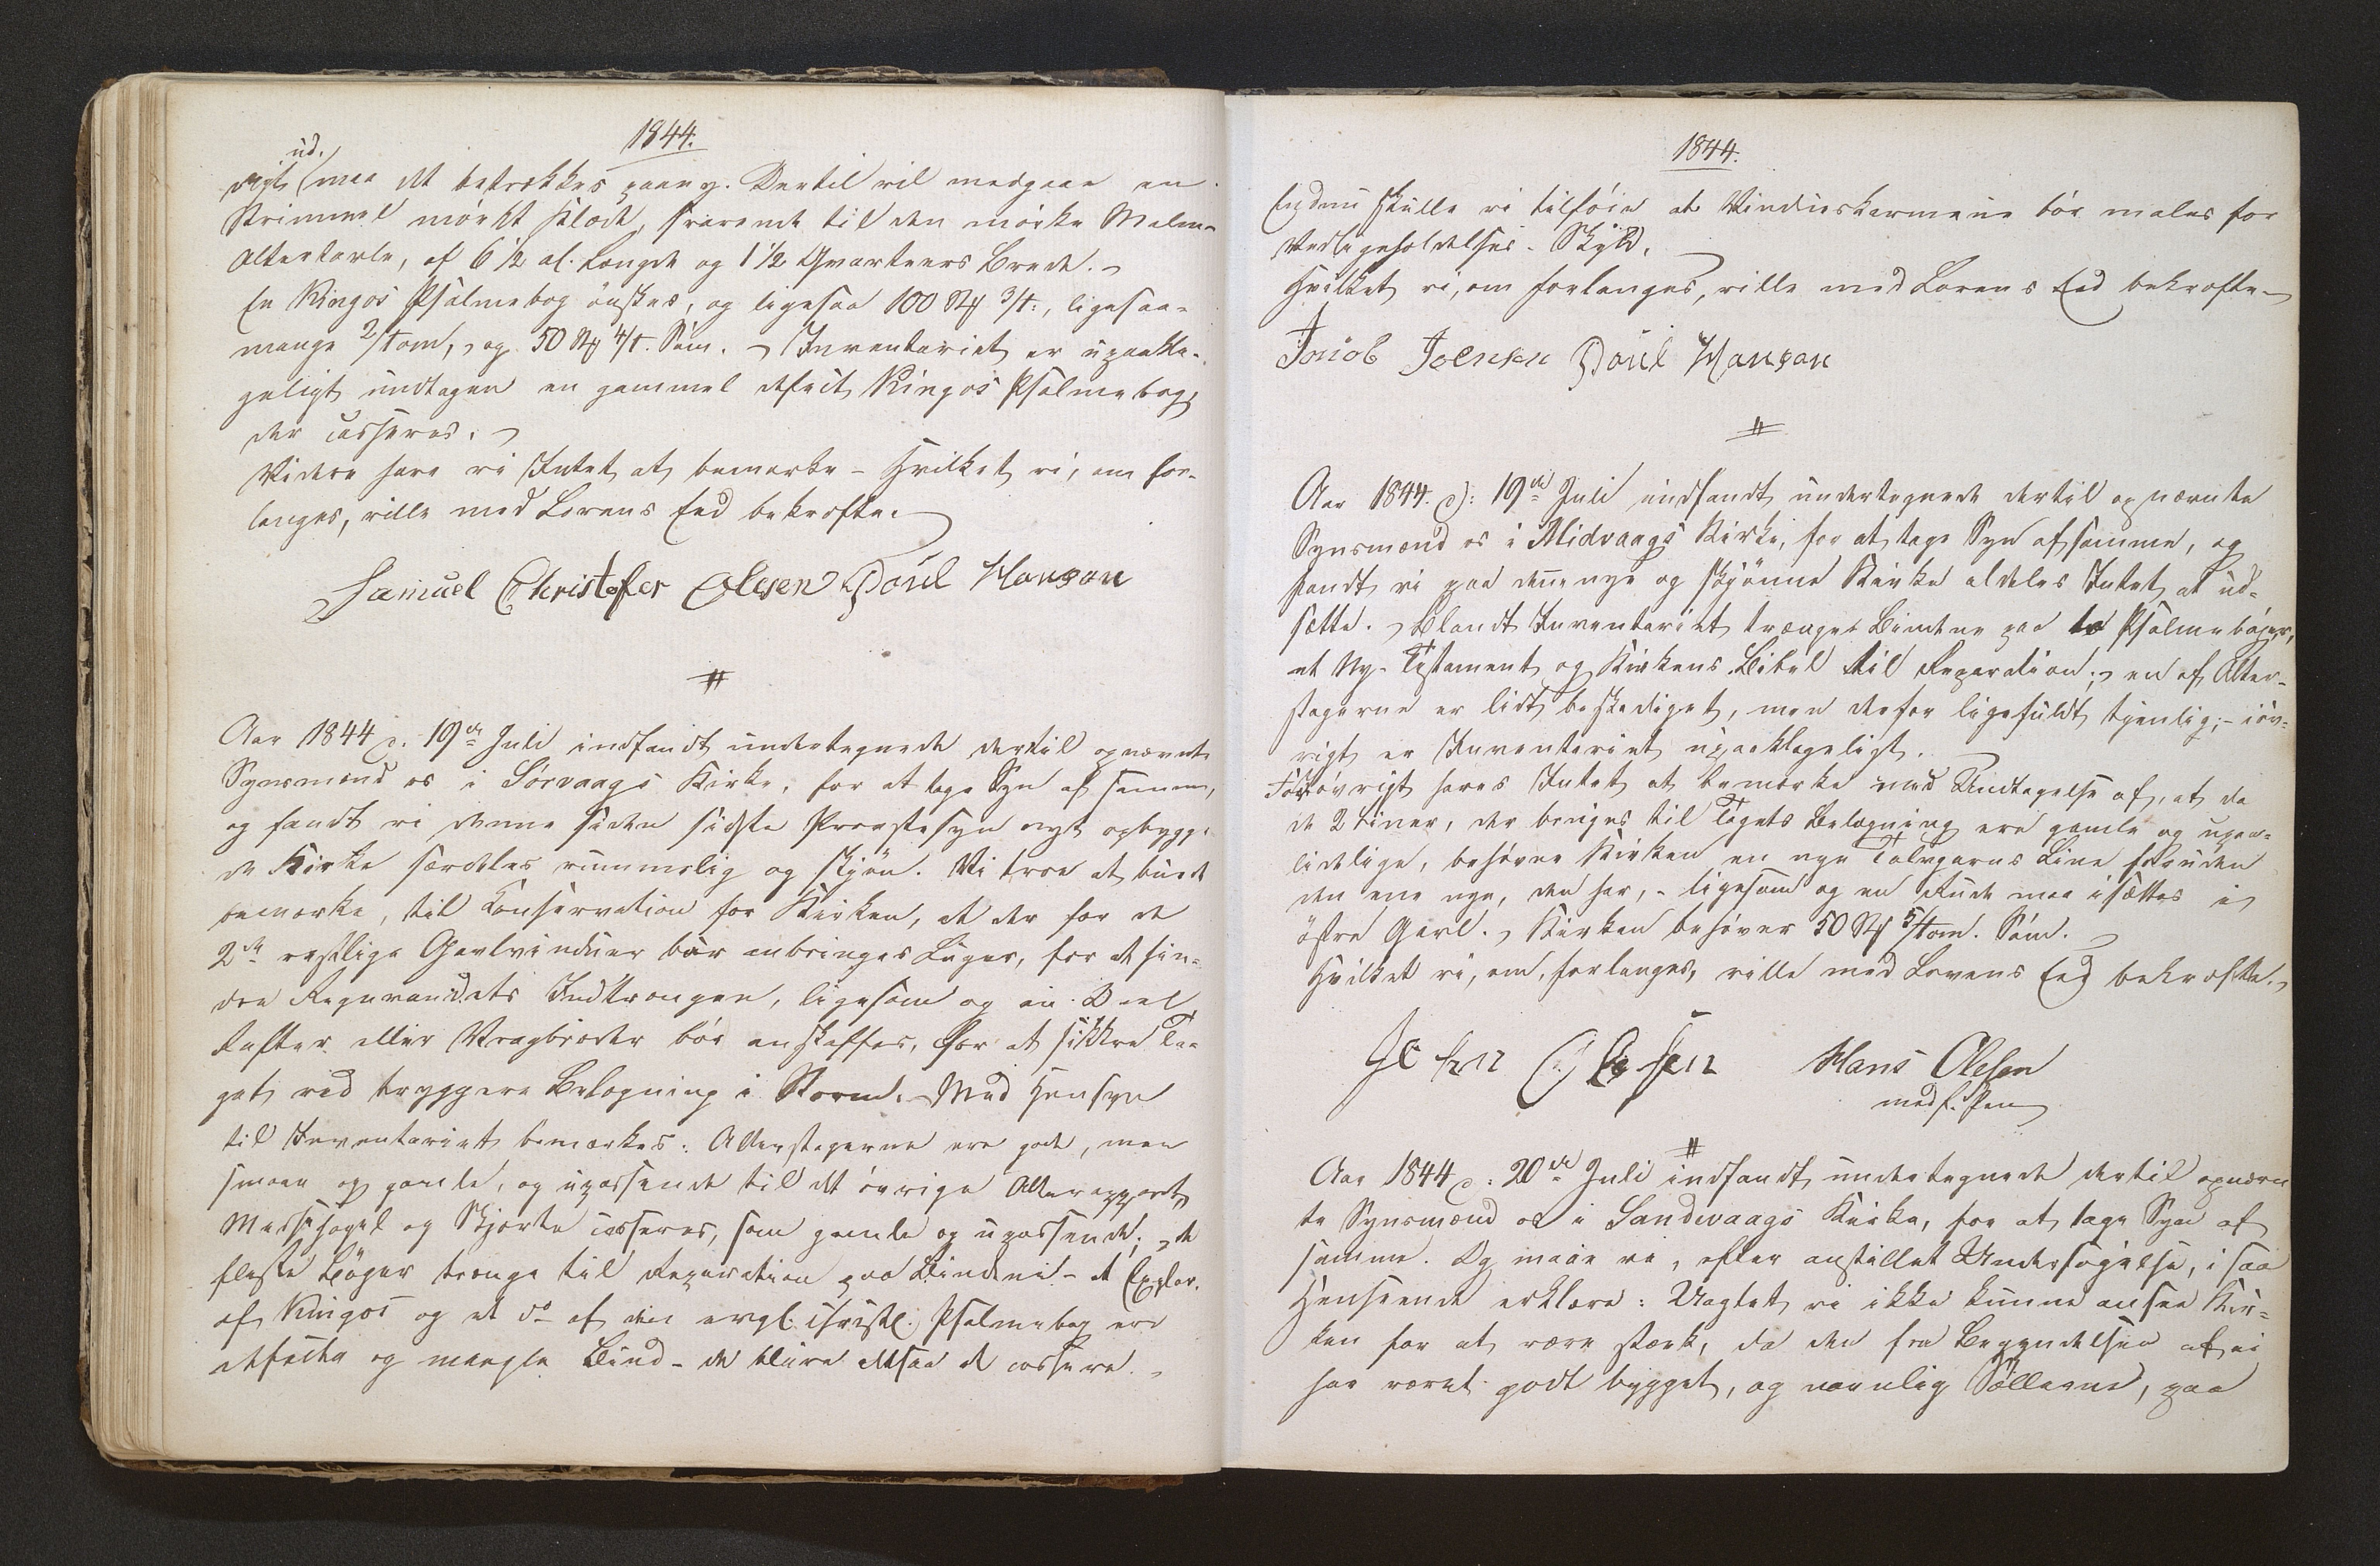 1844.
ud.
digt maa det betrækkes paany. Dertil vil medgaae en
Strimmel mørkt Klæde, svarende til den mørke Malm-
Altertavle, af 6 1/2 al. Længde og 1 1/2 Qvarteers Brede. -
En Kingos Psalmebog ønskes, og ligesaa 100 St 3/t:, ligesaa-
mange 2/tom, og 50 St 4/t. Søm. - Inventariet er upaakla-
geligt undtagen en gammel defect Kingos Psalmebog,
der casseres. -
Videre have vi Intet at bemærke - Hvilket vi, om for-
langes, ville med Lovens Eed bekræfte.
Samuel Christofer Olesen Poul Hansan
#
Aar 1844 d. 19de Juli indfandt undertegnede dertil opnævnte
Synsmænd os i Sørvaags Kirke, for at tage Syn af samme,
og fandt vi denne siden sidste Provstesyn nyt opbygge-
de Kirke særdeles rummelig og skjøn. Vi troe at burde
bemærke, til Conservation for Kirken, at der for de
2de vestlige Gavlvinduer bør anbringes Luger, for at hin-
dre Regnvandets Indtrængen, ligesom og en Deel
Rafter eller Vragbræder bør anskaffes, for at sikkre Ta-
get ved tryggere Belægning i Storm. - Med Hensyn
til Inventariet bemærkes: Alterstagerne ere gode, men
smaae og gamle, og upassende til det øvrige Alterapparat,
Messehagel og Skjorte casseres, som gamle og upassende; - de
fleste Bøger trænge til Reparation paa Bindene - et Explar.
af Kingos og et do af den evgl. christl. Psalmebog ere
defecte og mangle Bind - de blive altsaa at cassere. -
1844.
Endnu skulle vi tilføie at Vindueskarmene bør males for
Vedligeholdelses - Skyld.
Hvilket vi, om forlanges, ville med Lovens Eed bekræfte -
Jacob Joensen Poul Hansan
#
Aar 1844. d: 19de Juli indfandt undertegnede dertil opnævnte
Synsmænd os i Midvaags Kirke, for at tage Syn af samme, og
fandt vi paa denne nye og skjønne Kirke aldeles Intet at ud-
sætte. - Blandt Inventariet trænger Bindene paa to Psalmebøger,
et Ny-Testament og Kirkens Bibel til Reparation; - en af Alter-
stagerne er lidt beskadiget, men derfor ligefuldt tjenlig; - iøv-
rigt er Inventariet upaaklageligt.
Forøvrigt haves Intet at bemærke med Undtagelse af, at da
de 2 Liner, der bruges til Tagets Belægning ere gamle og upaa-
lidelige, behøver Kirken en nye Tolvgarns Line foruden
den ene nye, den har, - ligesom og en Rude maa isættes i
østre Gavl. - Kirken behøver 50 St 5/tom. Søm. -
Hvilket vi, om forlanges, ville med Lovens Eed bekræfte. -
Hans Olesen
med f. Pen
#
Aar 1844 d: 20de Juli indfandt undertegnede dertil opnævn
te Synsmænd os i Sandevaags Kirke, for at tage Syn af
samme. Og maae vi, efter anstillet Undersøgelse, i saa
Henseende erklære: Uagtet vi ikke kunne ansee Kir-
ken for at være stærk, da den fra Begyndelsen af ei
har været godt bygget, og navnlig Syllerne, paa